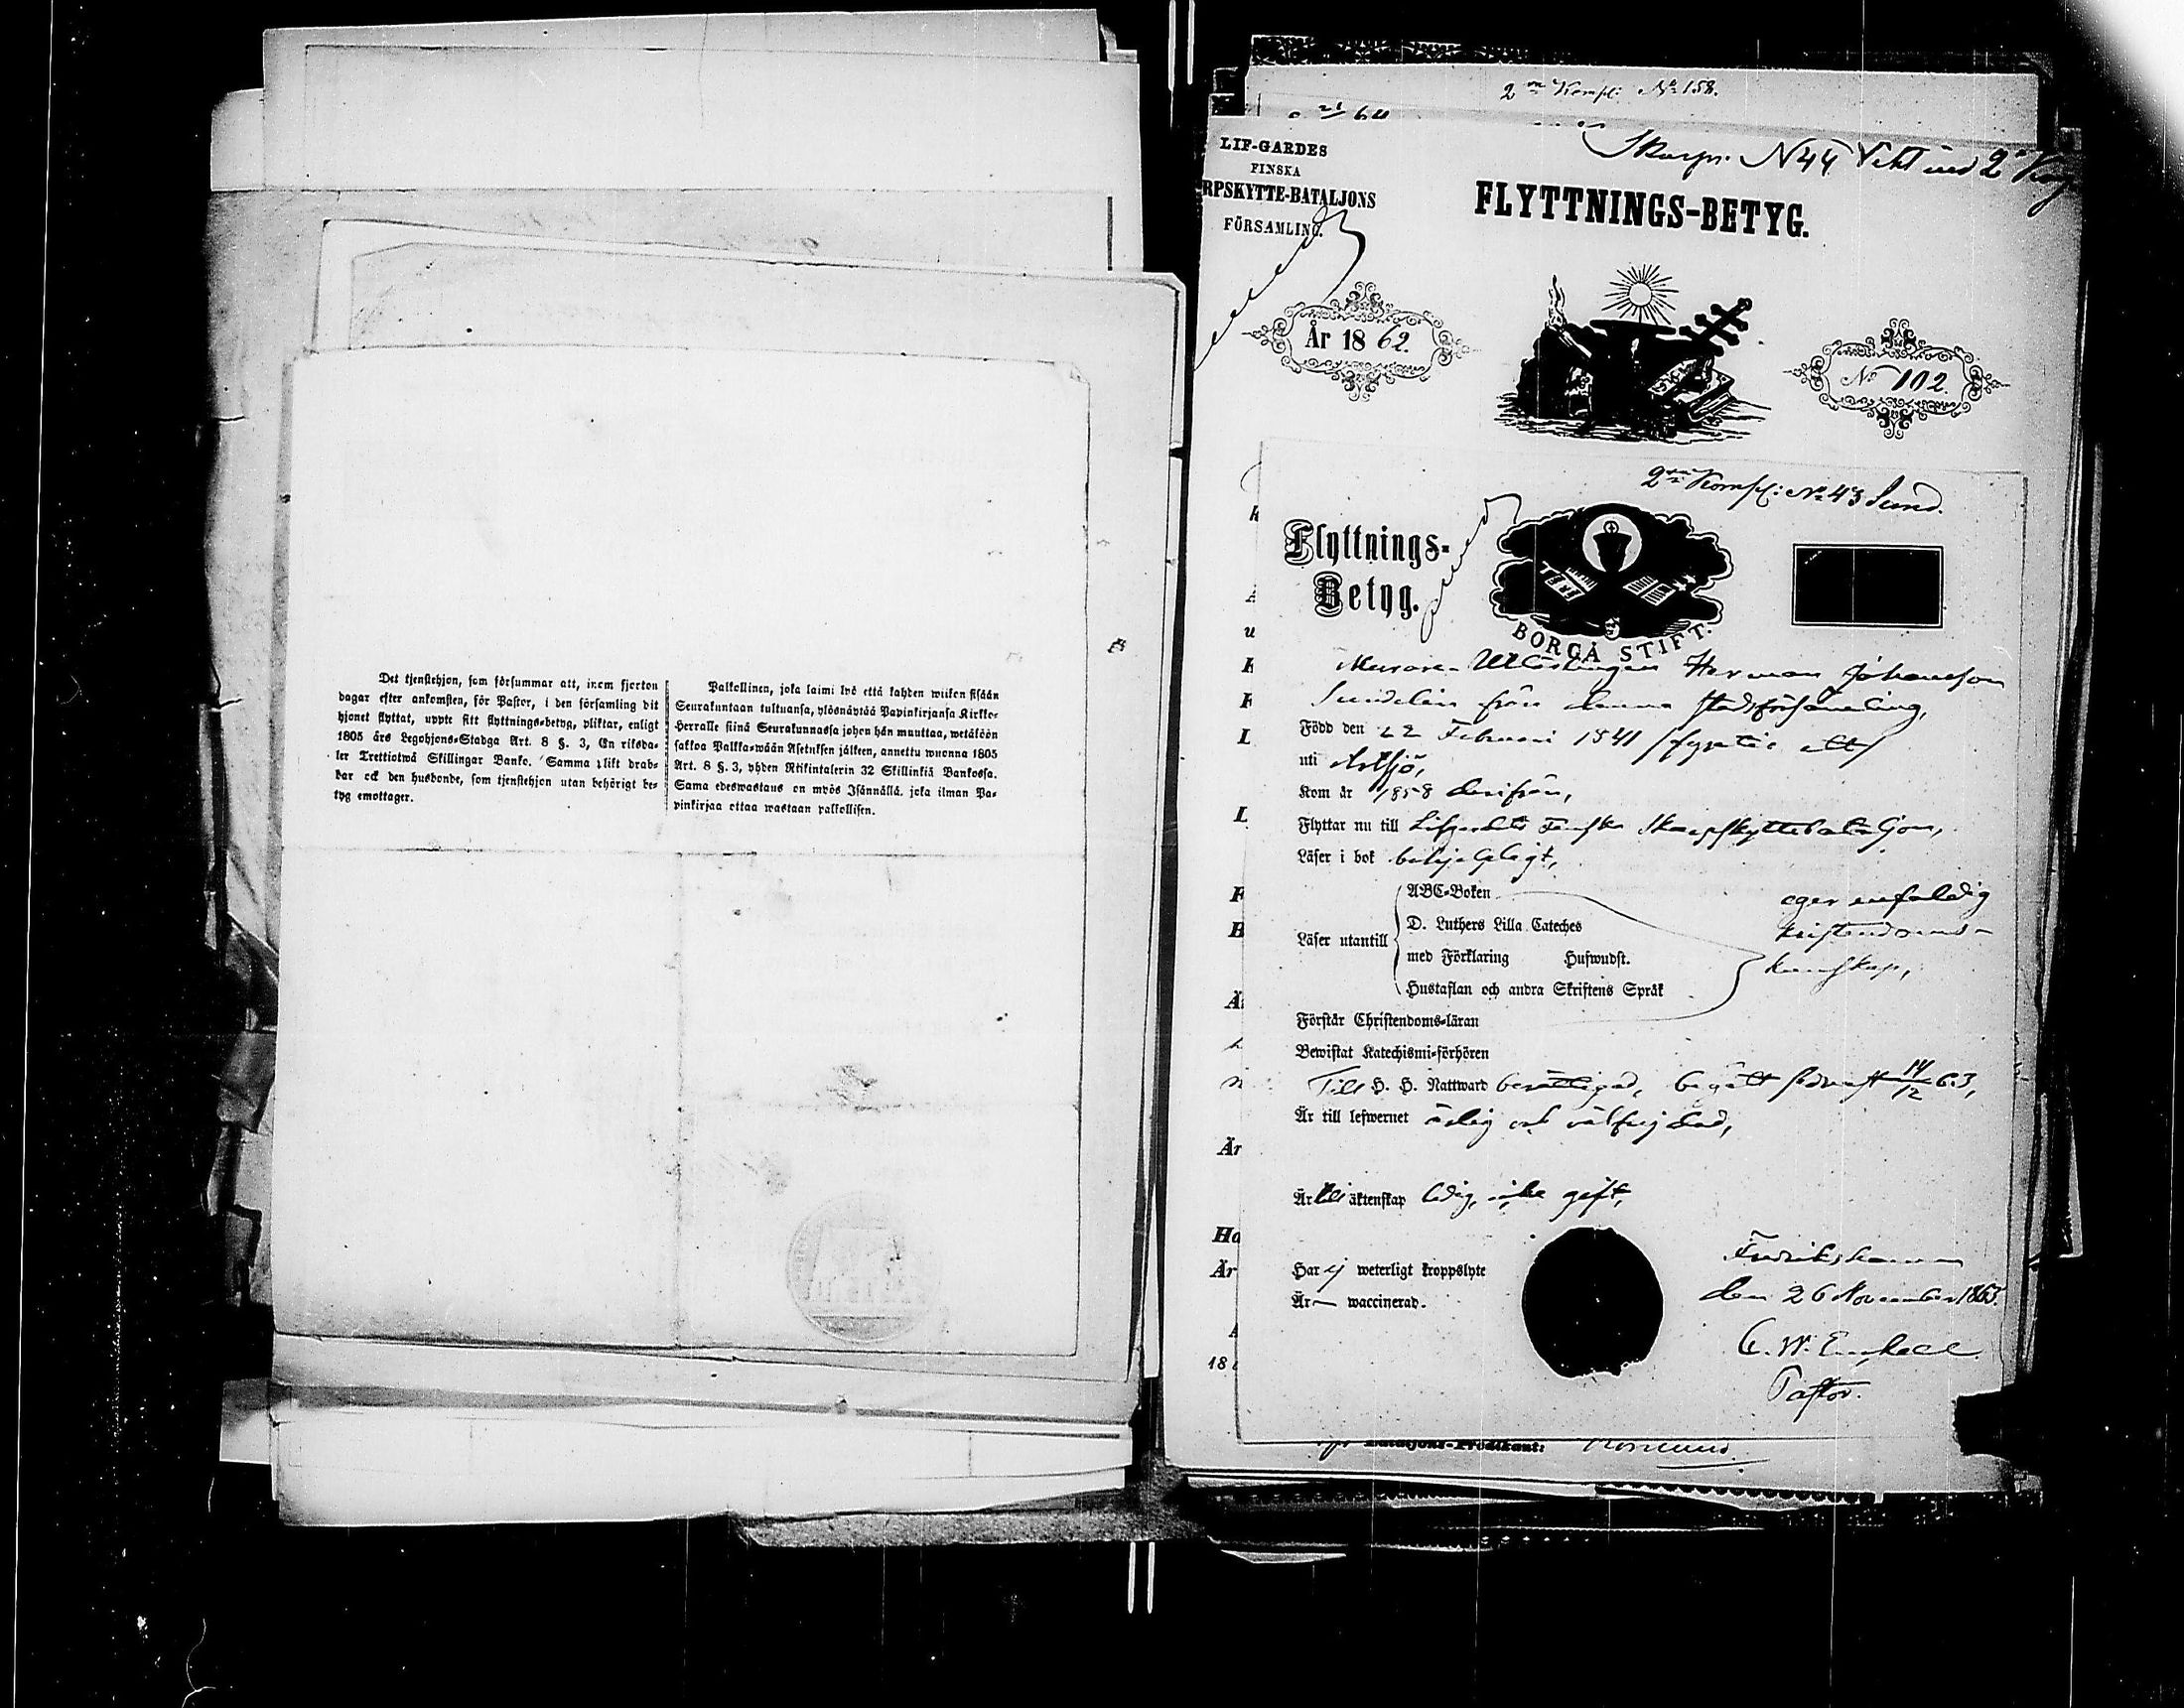 Det tjenstehjon, som försummar att, inom fjorton
dagar efter ankomsten, för Pastor, i den församling dit
hjonet flyttat, uppte sitt flyttnings-betyg, pliktar, enligt
1805 års Legohjons-Stadga Art. 8 §. 3, En riksda-
ler Trettiotwå Skillingar Banko. Samma plikt drab-
bar ock den husbonde, som tjenstehjon utan behörigt be-
tyg emottager.
Palkollinen, joka laimi lyö että kahden wiikon sisään
Seurakuntaan tultuansa, ylösnäytää Papinkirjansa Kirkko-
Herralle siinä Seurakunnassa johon hän muuttaa, wetäköön
sakkoa Palkka-wään Asetuksen jälkeen, annettu wuonna 1805
Art. 8 §. 3, yhden Riikintalerin 32 Skillinkiä Bankossa.
Sama edeswastaus on myös Isännällä, joka ilman Pa-
pinkirjaa ottaa wastaan palkollisen.
2 Kompl: No 158.
64
Skarpr. N 44
LIF-GARDES
FINSKA
RPSKYTTE-BATALJONS
FÖRSAMLING.
FLYTTNINGS-BETYG.
År 1862.
No 102.
2 Kompl: No 43 Sund.
Flyttnings-
Betyg.
BORGÅ STIFT.
Herman Johansson
Sundelin från denna Stadsförsamling,
Född den 22 Februari 1841 /fyratio ett/
uti Artsjö,
Kom år 1858 derifrån,
Flyttar nu till Lifgardets Finska Skarpskyttebataljon,
Läser i bok behjelpligt,
Läser utantill
ABC-Boken
D. Luthers Lilla Cateches
med Förklaring Hufwudst.
Hustaflan och andra Skriftens Språk
eger enfaldig
kristendoms-
kunskap,
Förstår Christendoms-läran
Bewistat Katechismi-förhören
Till H. H. Nattward berättigad, begått sednast 14/12 63,
Är till lefwernet ärlig och välfrejdad,
Är till äktenskap ledig, icke gift,
Har ej weterligt kroppslyte
Är — waccinerad.
Fredrikshamn
den 26 November 1863.
C. W. Enckell
Pastor.
Bataljons-Predikant: